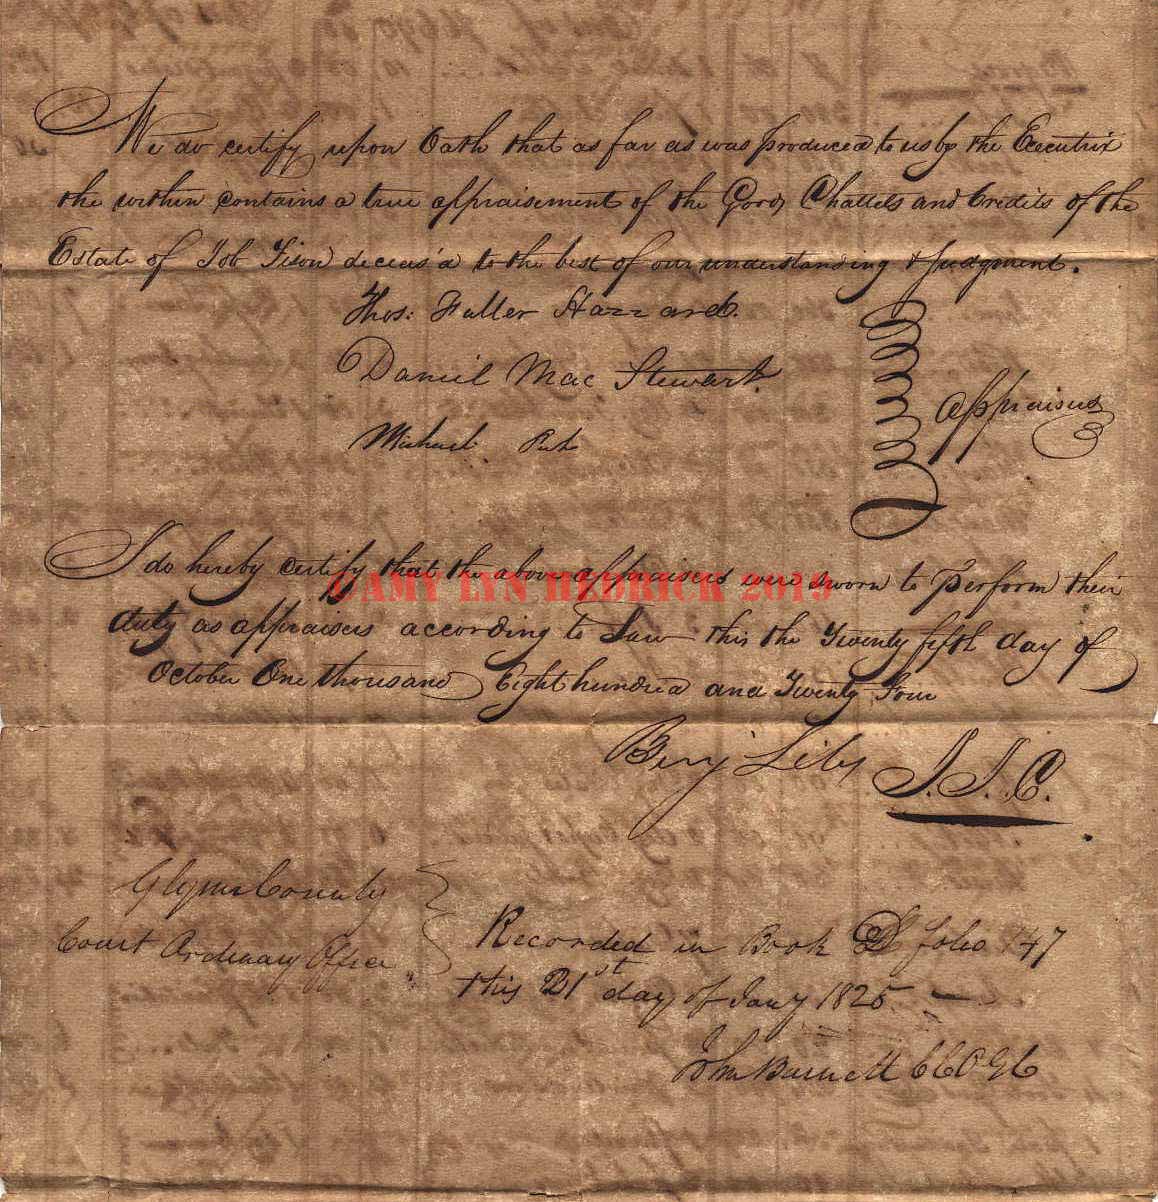 We do certify upon Oath that as far as was produced to us by the Executrix
the within contains a true appraisement of the Goods Chattels and Credits of the
Estate of Job Tison deceas'd to the best of our understanding & Judgment.
Thos: Fuller Hazzard.
Daniel Mac Stewart
Appraisers
Michael
I do hereby certify that the above appraisers were sworn to perform their
©AMY LYN HEDRICK 2019
duty as appraisers according to Law this the Twenty fifth day of
October One thousand Eight hundred and Twenty Four
J.J.C.
Glynn County
Court Ordinary Office
Recorded in Book D folio 147
this 21st day of Jany 1825
John Burnett CCOGC